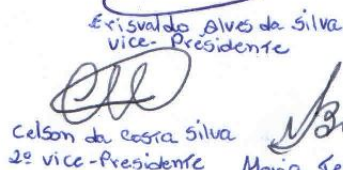 Erisvaldo Alves da Silva
Vice-Presidente
Celson da Costa Silva
2º Vice-Presidente Maria